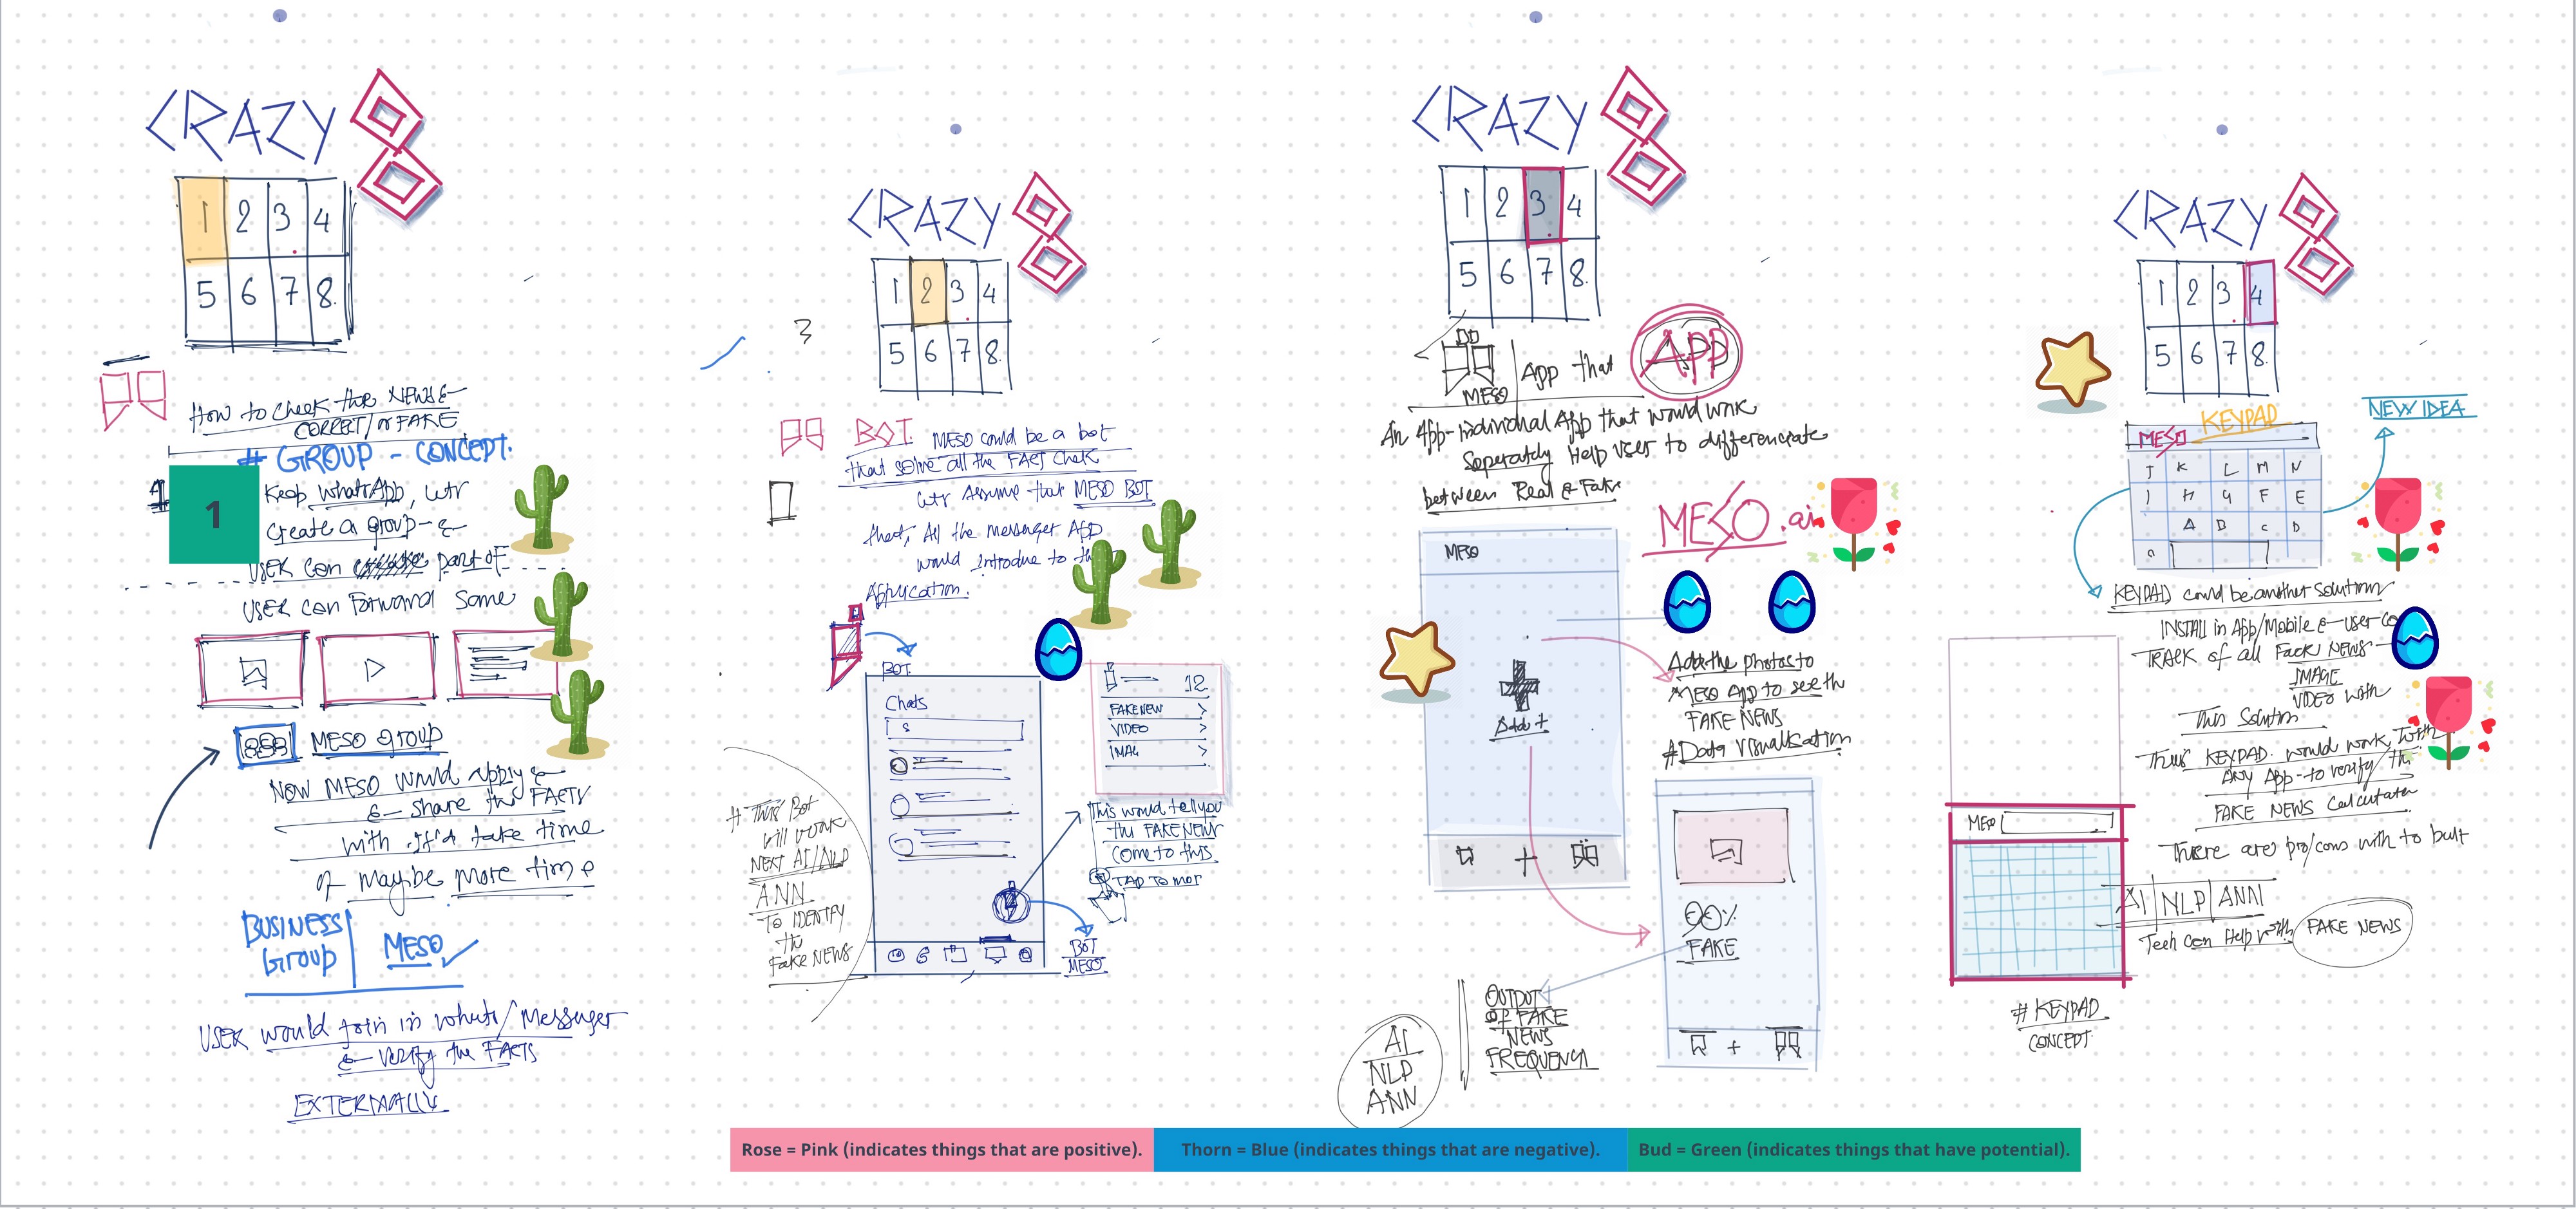 CRAZY 8
1 2 3 4
5 6 7 8.
How to check the NEWS
CORRECT/or FAKE
# GROUP - CONCEPT.
1
Keep WhatsApp,
Create a group
USER can part of
USER can Forward Same
MESO group
NOW MESO Would Apply
& share the FACTS
with It'd take time
of Maybe More time
BUSINESS
Group
MESO
USER would join in Whats/Messenger
& Verify the FACTS
EXTERNALLY
CRAZY 8
1 2 3 4
5 6 7 8.
3
BOT. MESO could be a bot
that solve all the FACT check
Assume that MESO BOT
that, All the Messenger App
would Introduce to
Application.
BOT
Chats
S
12
FAKENEW >
VIDEO >
IMAG >
# This Bot
Will work
NEXT AI/NLP
ANN
TO IDENTIFY
the
Fake NEWS
This would tell you
the FAKENEWS
Come to this
TAP To mor
BOT
MESO
CRAZY 8
1 2 3 4
5 6 7 8.
MESO
App that
APP
An App-individual App that would work
Seperately Help User to differenciate
between Real & Fake
MESO.ai
MESO
Add +
Add the photos to
MESO App to see th
FAKE NEWS
# Data Visualisation
90%
FAKE
OUTPUT
of FAKE
NEWS
FREQUENCY
AI
NLP
ANN
+
+
CRAZY 8
1 2 3 4
5 6 7 8.
NEW IDEA
KEYPAD
MESO
J K L M N
I H G F E
A B C D
KEYPAD could be another Solution
INSTALL in App/Mobile & user Co
TRACK of all NEWS
IMAGE
VIDEO with
This Solution
This KEYPAD. would work, with
Any App-to verify/th
FAKE NEWS Calculator
There are pro/cons with to built
MESO
AI | NLP | ANN
Tech Can Help with
FAKE NEWS
# KEYPAD
CONCEPT
Rose = Pink (indicates things that are positive).
Thorn = Blue (indicates things that are negative).
Bud = Green (indicates things that have potential).